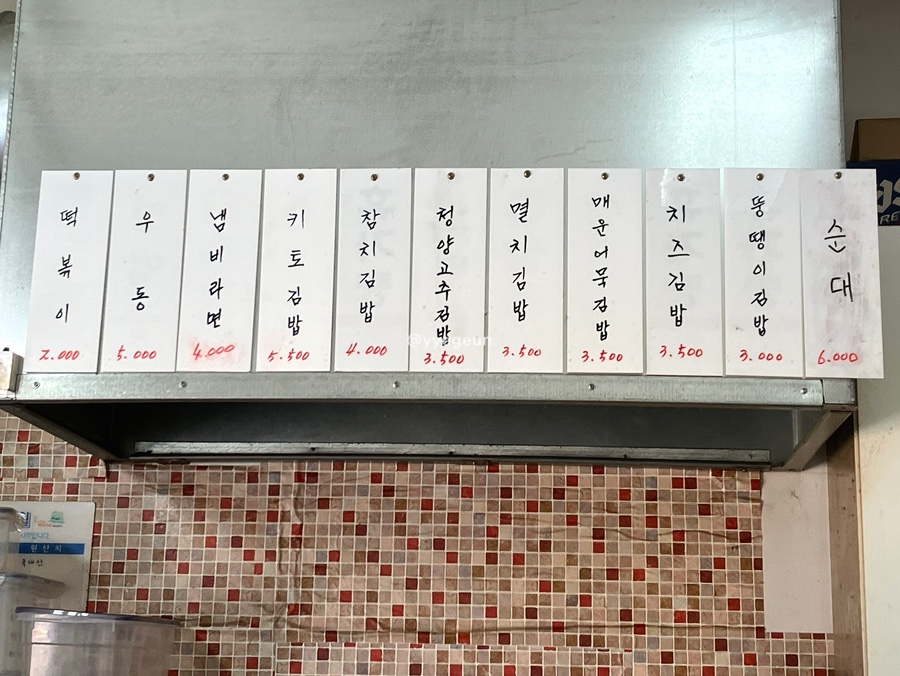 떡볶이
7.000
우동
5.000
냄비라면
4.000
키토김밥
5.500
참치김밥
4.000
청양고추김밥
3.500
멸치김밥
3.500
매운어묵김밥
3.500
치즈김밥
3.500
뚱땡이김밥
3.000
순대
6.000
@yyegeun
원산지